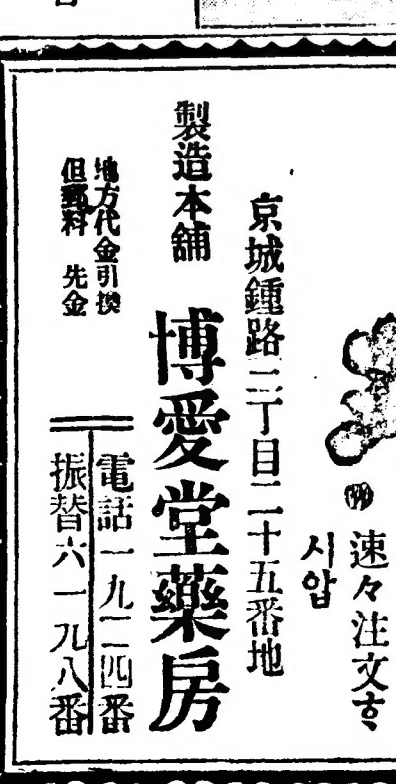 速々注文ᄒᆞ
시압
京城鍾路三丁目二十五番地
製造本舖 博愛堂藥房
地方代金引換
但郵料 先金
電話一九二四番
振替六一九八番